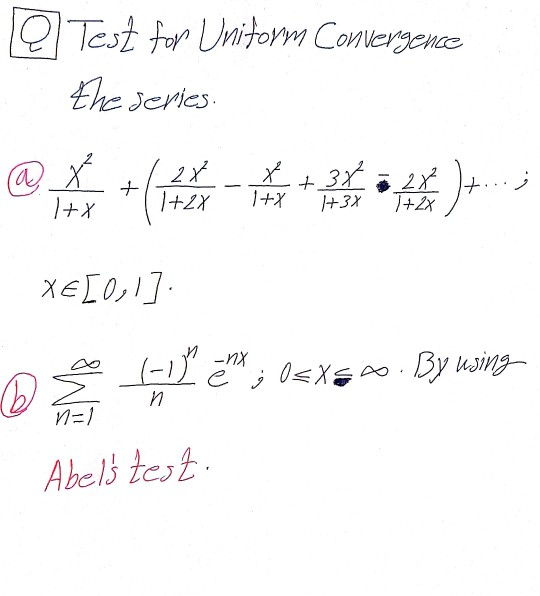 Q Test for Uniform Convergence
the series.
(a) x²/(1+x) + (2x²/(1+2x) - x²/(1+x) + 3x²/(1+3x) - 2x²/(1+2x)) + ... ;
x∈[0,1].
(b) ∑_{n=1}^{∞} (-1)ⁿ/n e^{-nx} ; 0≤x≤∞. By using
Abel's test.